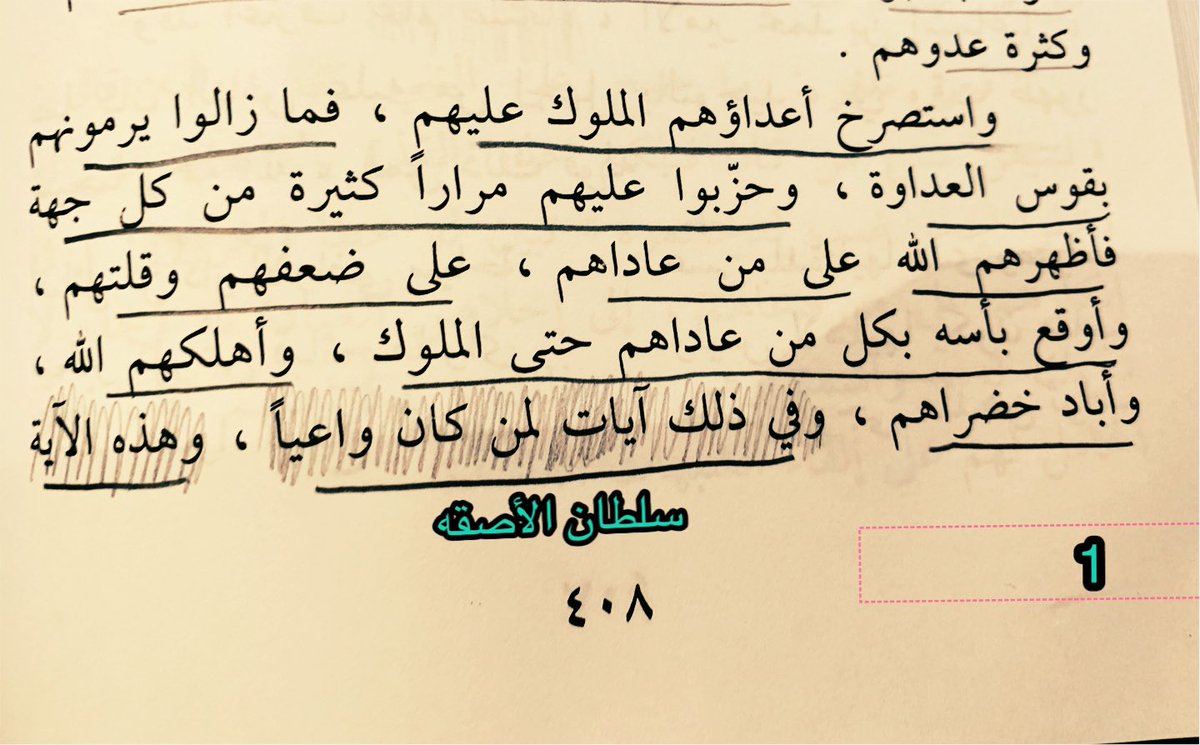 وكثرة عدوهم .
واستصرخ أعداؤهم الملوك عليهم ، فما زالوا يرمونهم
بقوس العداوة ، وحزّبوا عليهم مراراً كثيرة من كل جهة
فأظهرهم الله على من عاداهم ، على ضعفهم وقلتهم ،
وأوقع بأسه بكل من عاداهم حتى الملوك ، وأهلكهم الله ،
وأباد خضراهم ، وفي ذلك آيات لمن كان واعياً ، وهذه الآية
سلطان الأصقه
1
٤٠٨